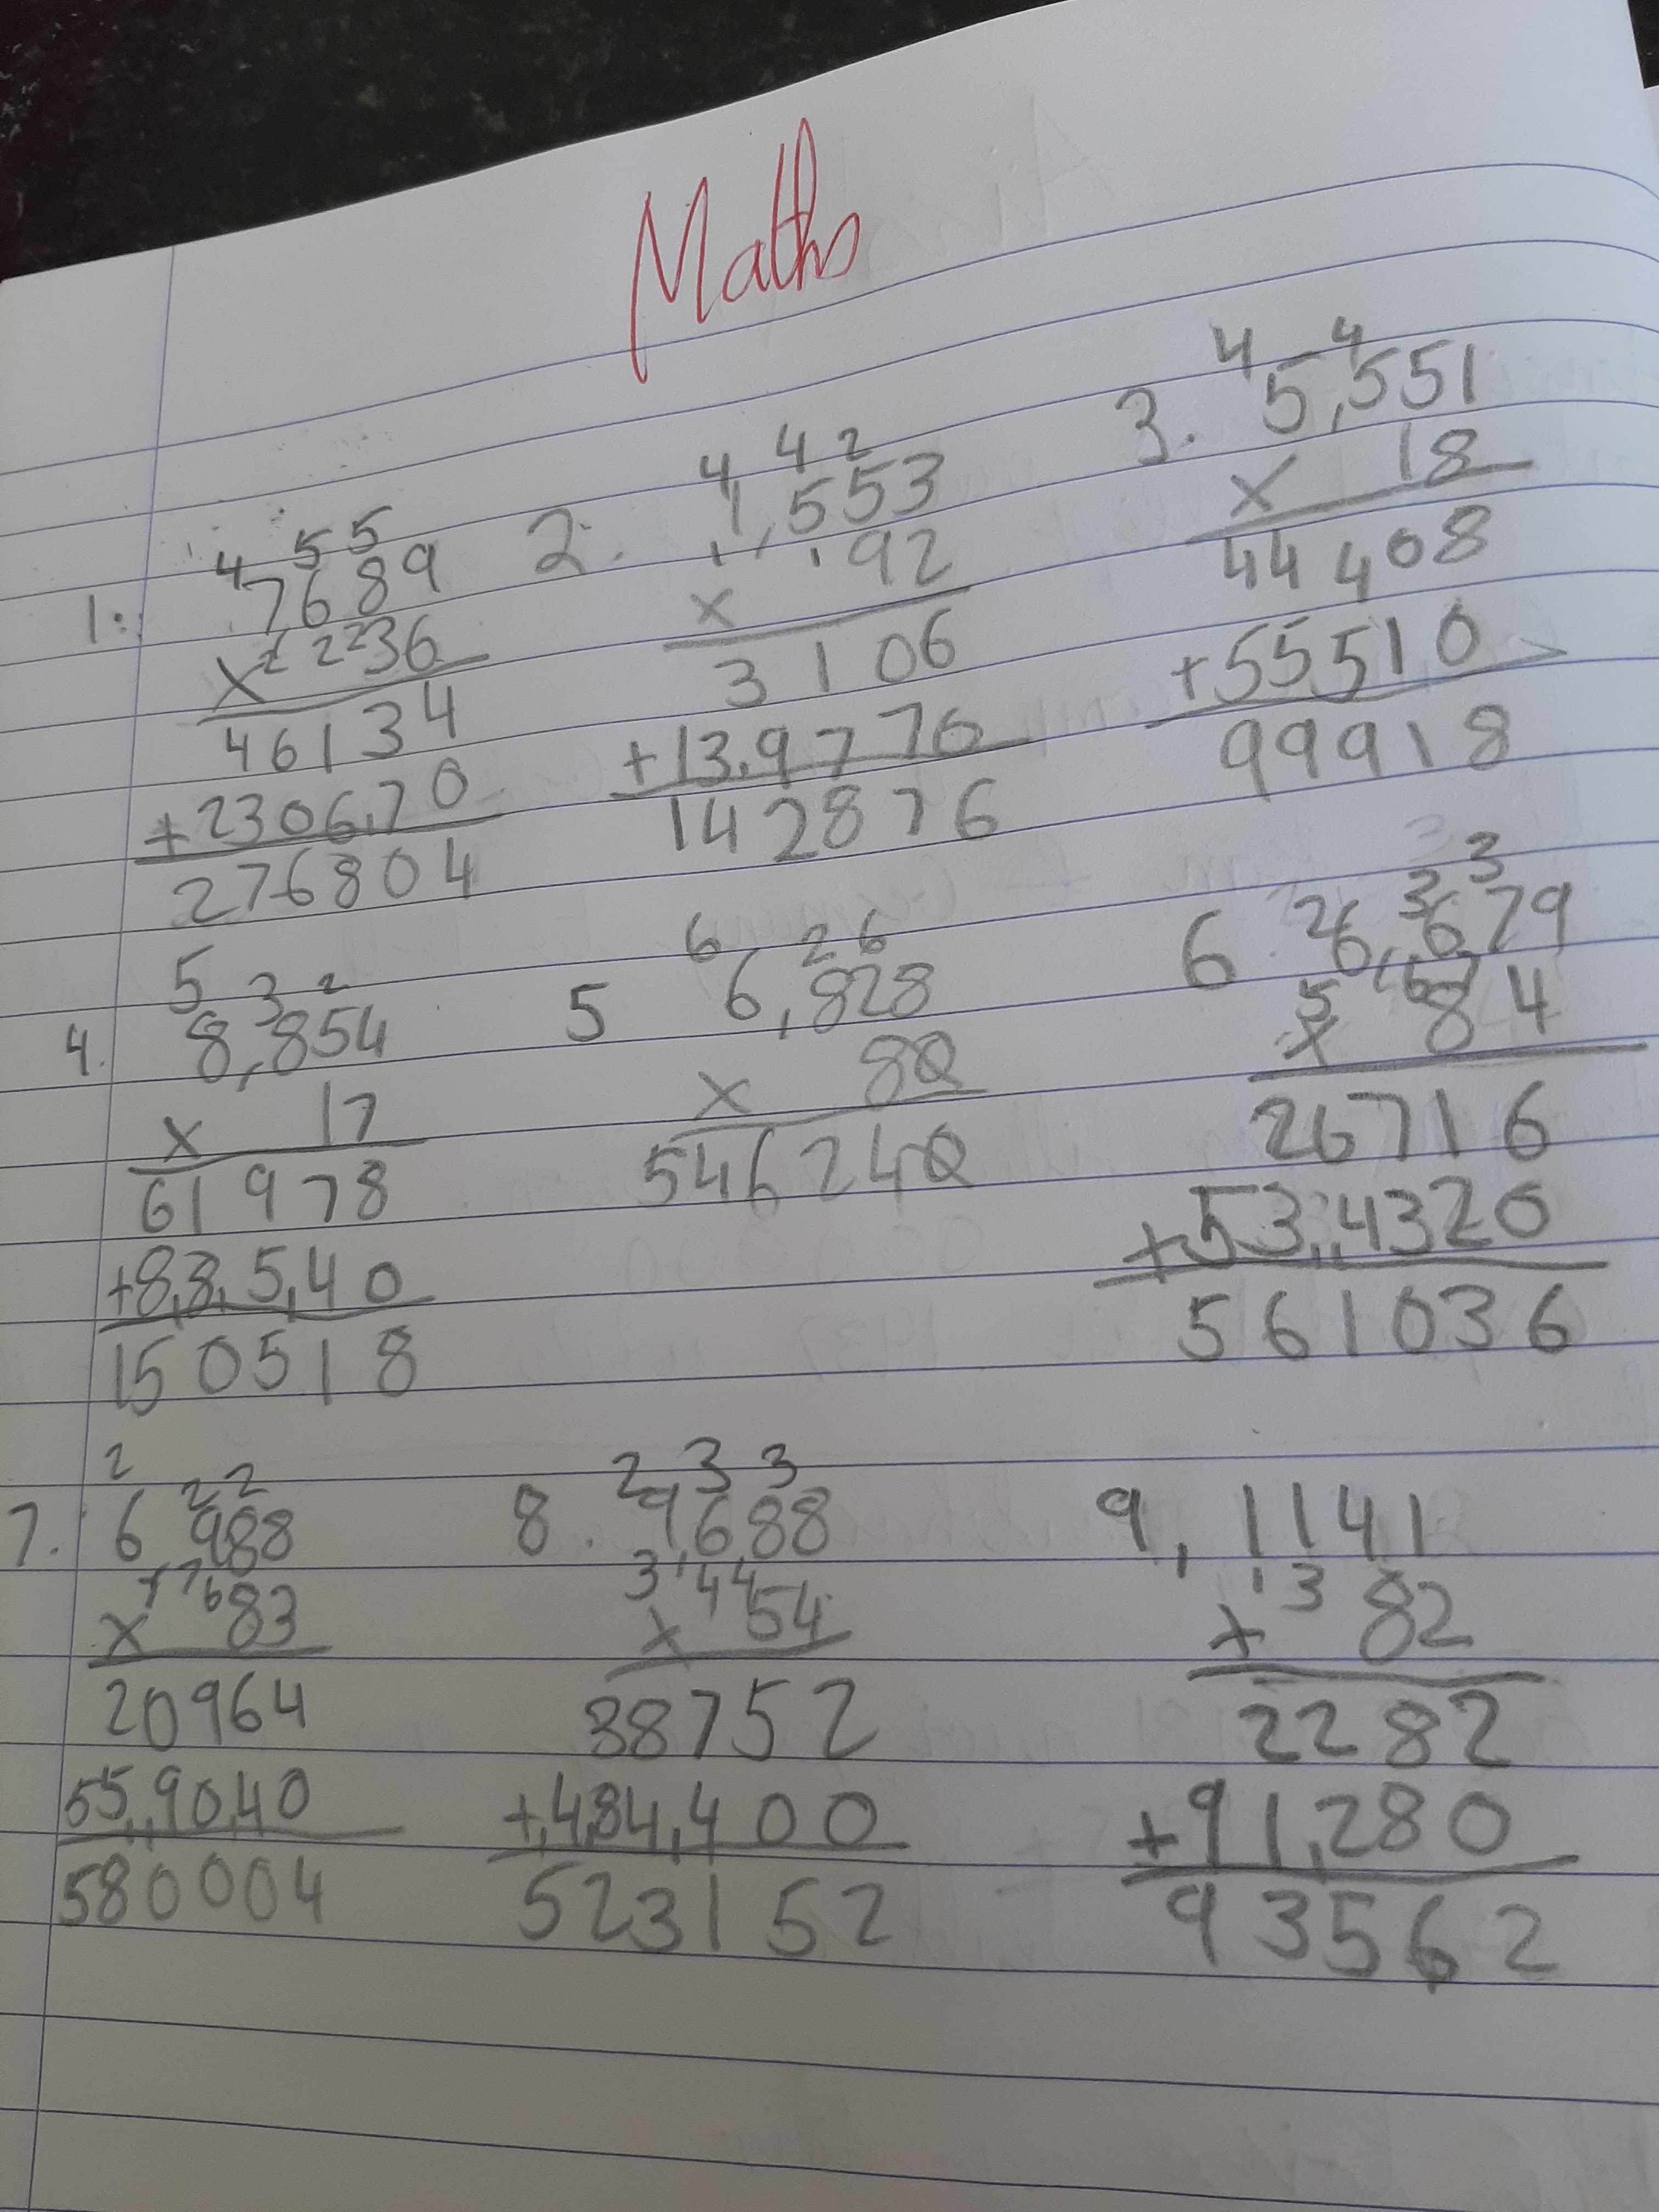 Maths
1.
4 5 5
7689
2 2 2 36
×
46134
+230670
276804
2.
4 4 2
1,553
1 1 92
×
3106
+139770
142876
3.
4 4
5,551
× 18
44408
+55510
99918
4.
5 3 2
8,854
× 17
61978
+88540
150518
5
6 2 6
6,828
× 80
546240
6
2 3 3
6,679
5 6 7
× 84
26716
+534320
561036
7.
2 2 2
6988
7 7 6
× 83
20964
559040
580004
8.
2 3 3
9,688
3 4 4
× 54
38752
+484400
523152
9,
1141
1 3
× 82
2282
+91280
93562